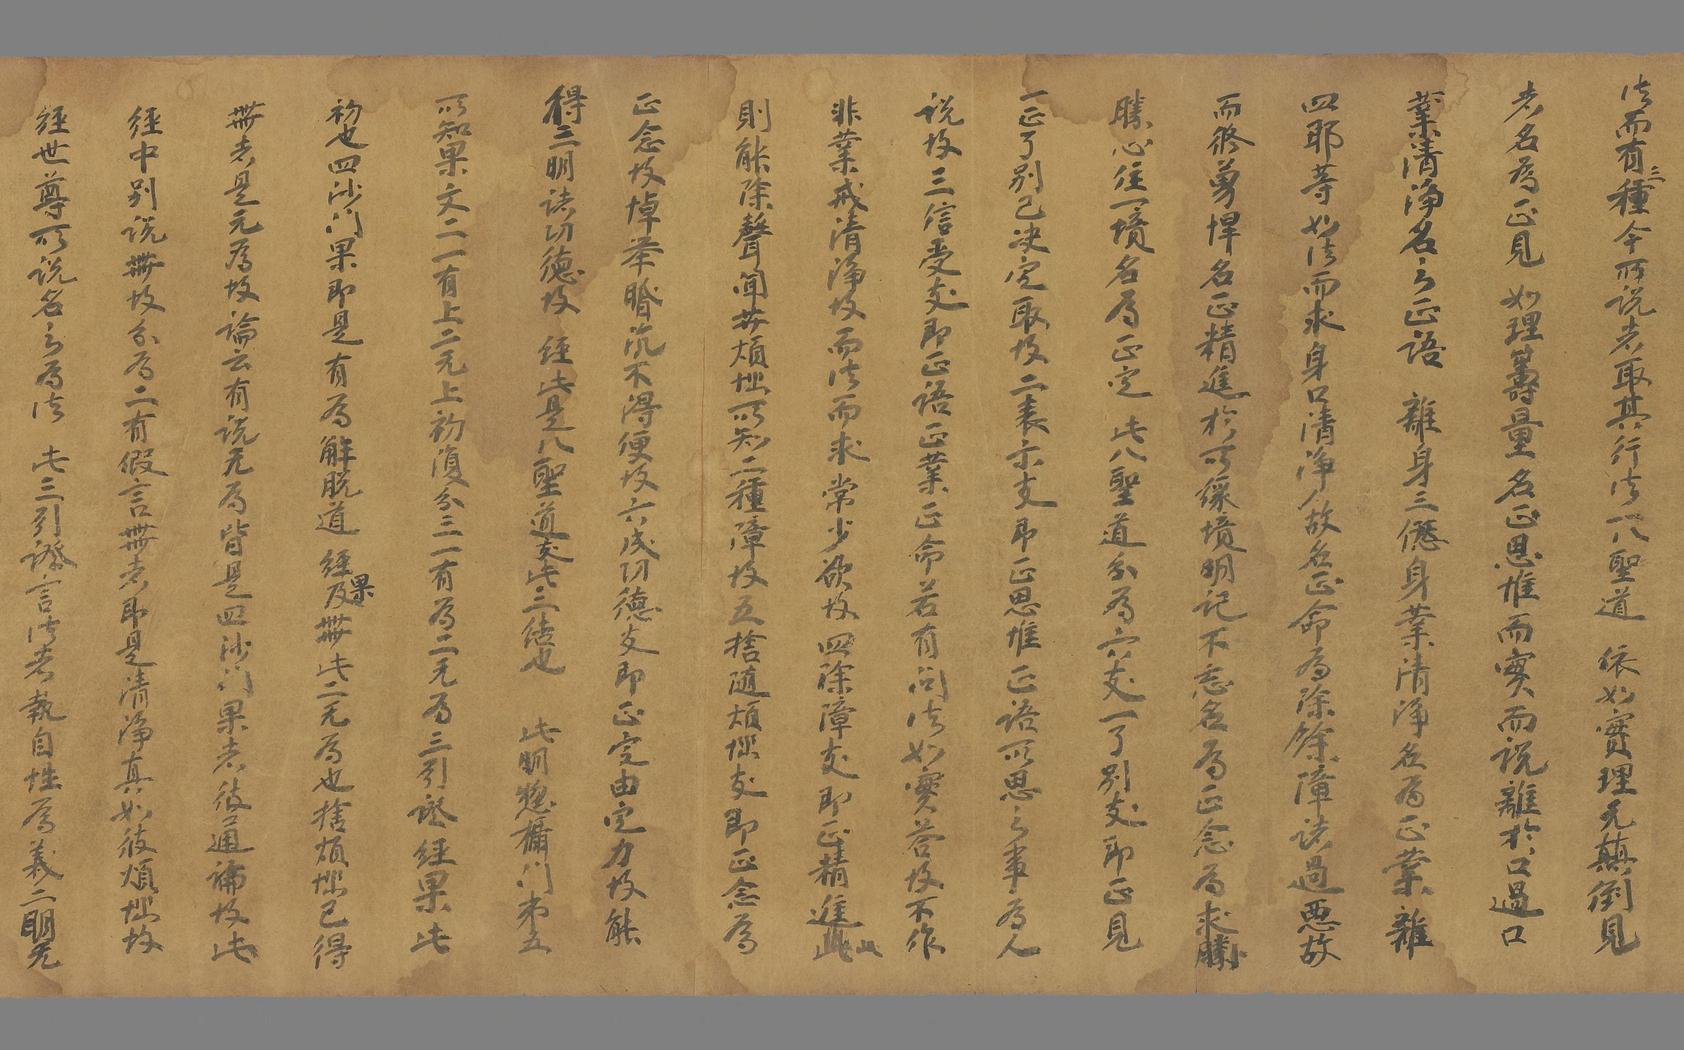 法而有三種今所說者取其行法一八聖道 依如實理无顛倒見
者名為正見 如理籌量名正思惟而實而說離於口過口
業清淨名之正語 離身三𠎝身業清淨名為正業 離
四耶等如法而求身口清淨故名正命為除餘障諸過惡故
而修勇悍名正精進於所緣境明記不忘名為正念為求勝
勝心住一境名為正定 此八聖道分為六支一了別支即正見
一正了別已決定取故二表示支即正思惟正語所思之事為人
說故三信受支即正語正業正命若有問法如實答故不作
非業戒清淨故而法而求常少欲故四除障支即正精進此
則能除聲聞安煩惱所知二種障故五捨隨煩惱支即正念為
正念故悼舉惛沉不得便故六成功德支即正定由定力故能
得三明諸功德故 經此是八聖道支此三結也 此明惣攝門弟五
所知果文二一有上二无上初復分三一有為二无為三引證經果此
初也四沙門果即是有為解脫道 經及果無此二无為也捨煩惱已得
無者是无為故論云有說无為皆是四沙門果者彼通論故此
經中別說無故分為二有假言無者即是清淨真如彼煩惱故
經世尊所說名之為法 此三引證言法者執自性為義二明无